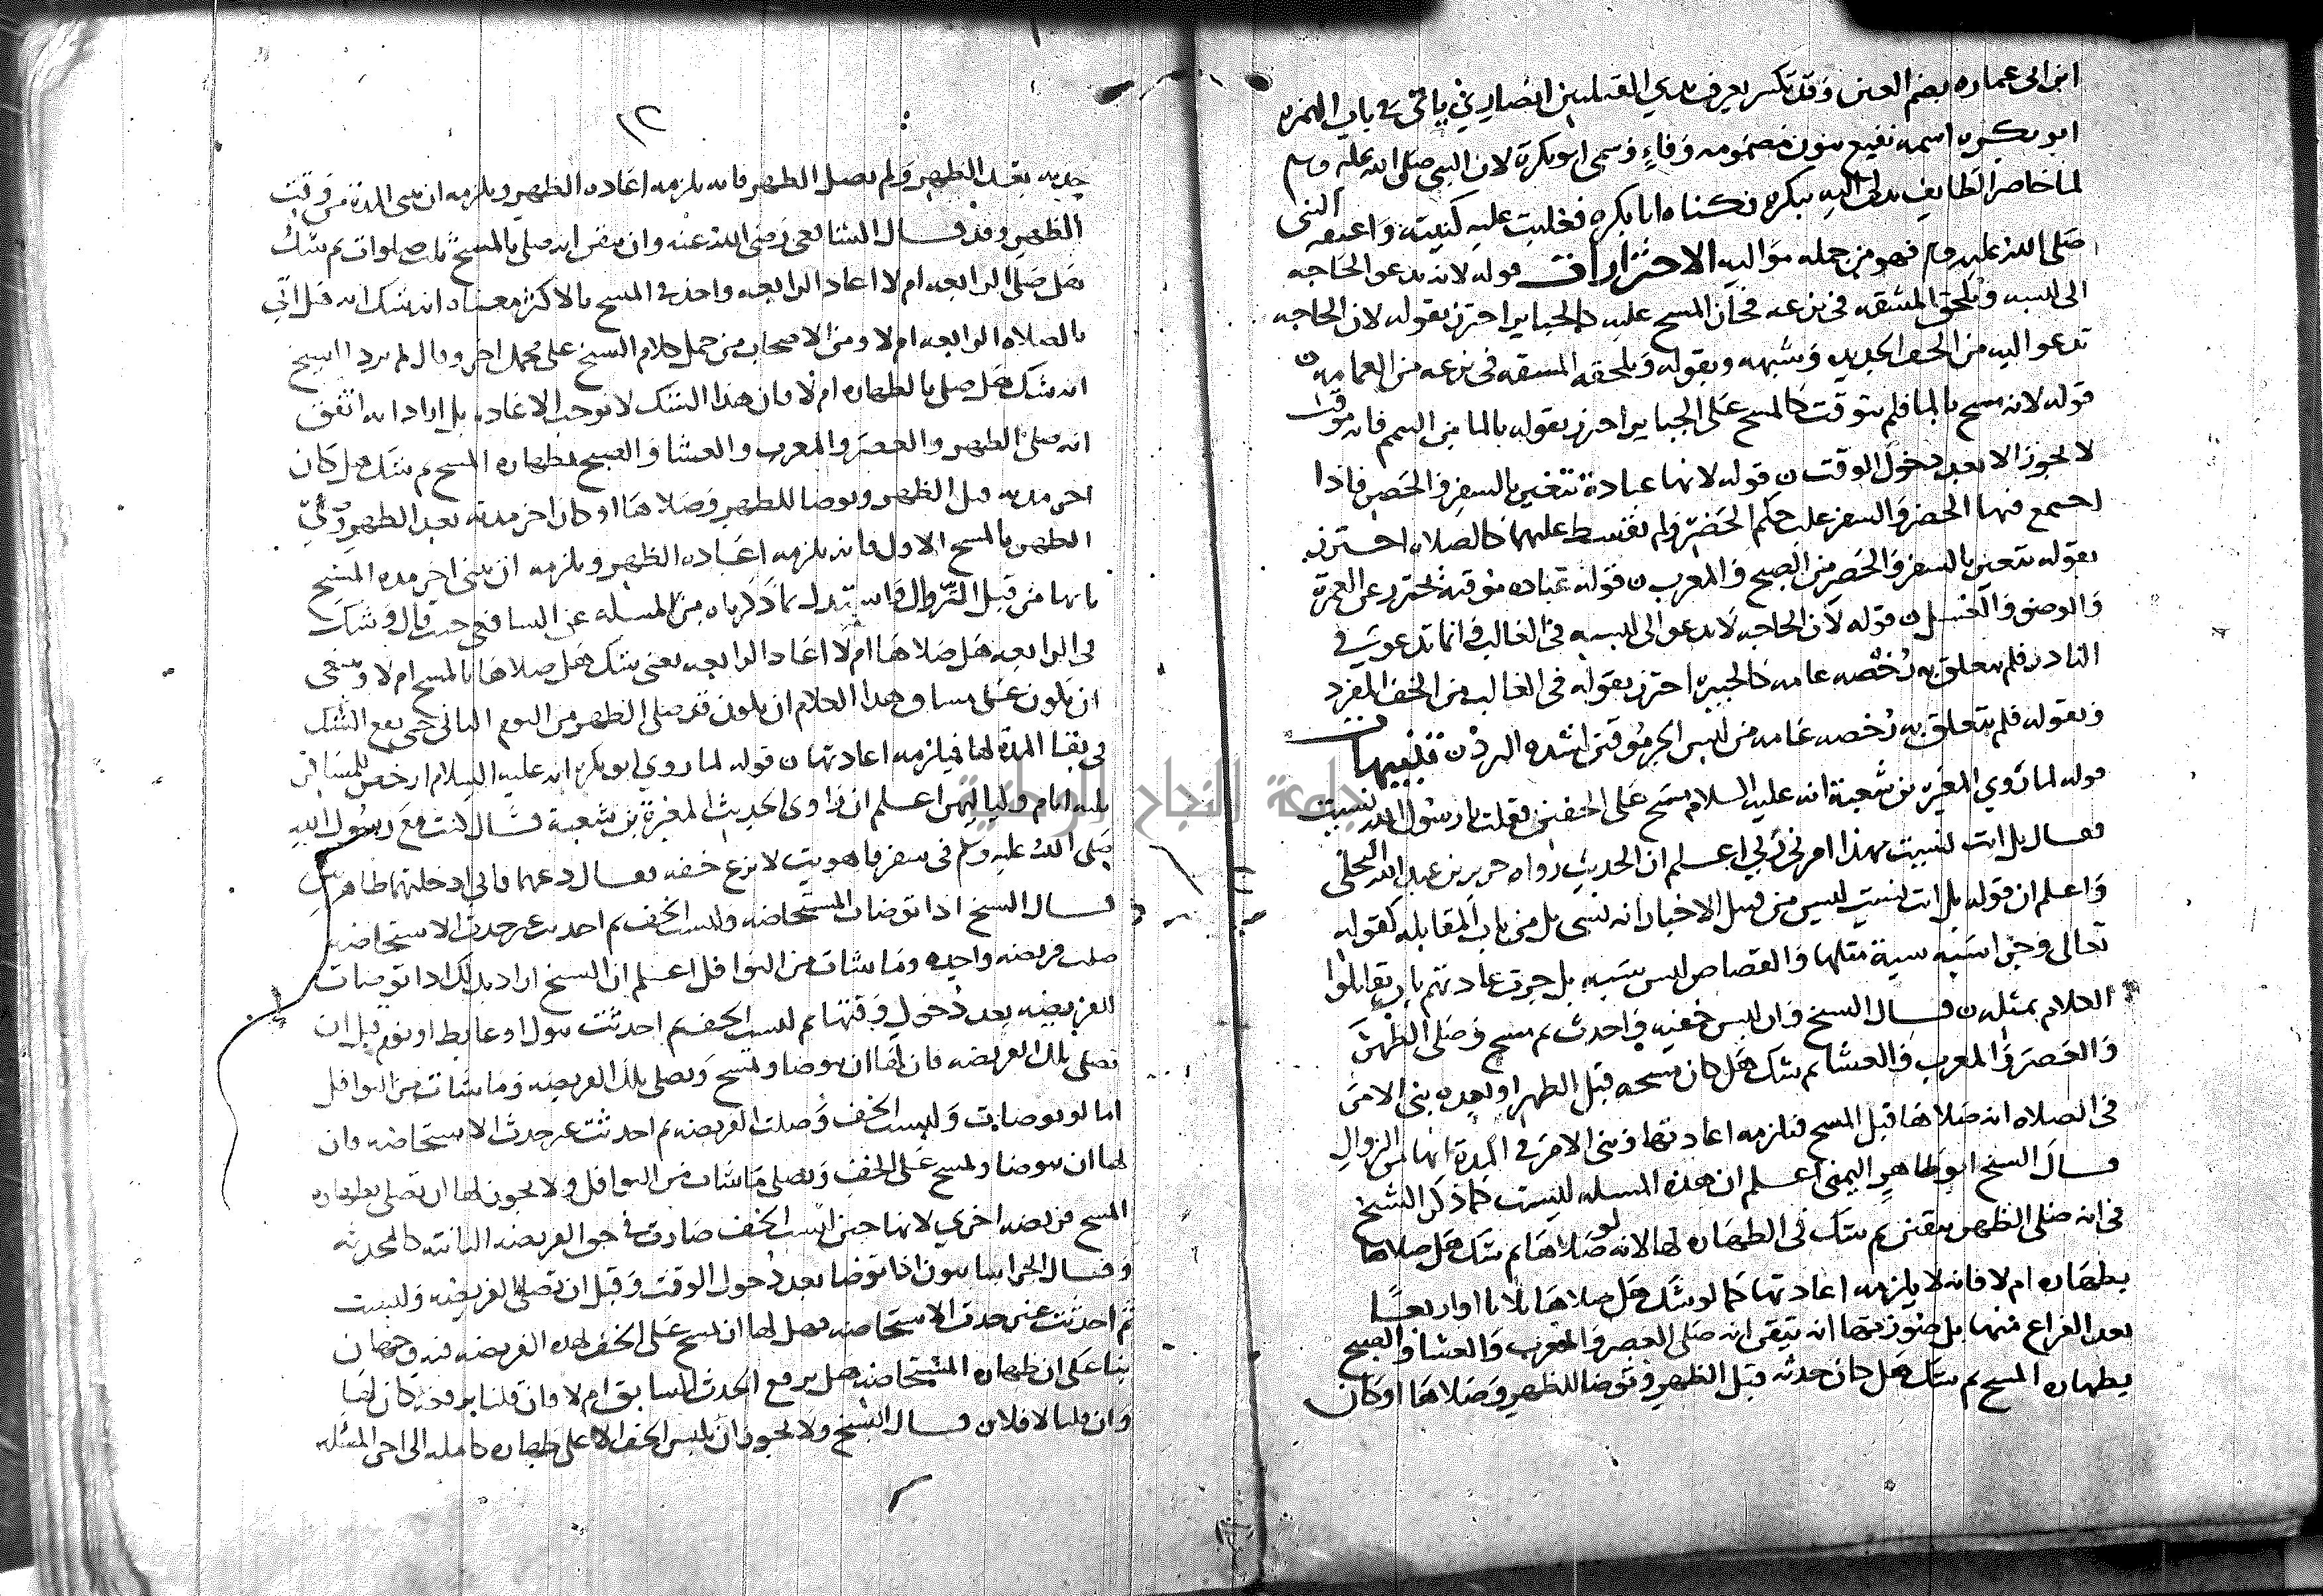 ابن ابى عماره بضم العين وقد تكسر يعرف بذي القبلتين انصاري ياتى فى باب الهمزه
ابو بكره اسمه نفيع بنون مضمومه وفاءٍ وسمى ابو بكرة لان النبى صلى الله عليه وسلم
لما حاصر الطايف تدلى اليه ببكره فكناه ابا بكره فغلبت عليه كنيته واعتقه النبى
صلى الله عليه وسلم فهو من جمله مواليه الاحترازات قوله لانه يدعو الحاجه
الى لبسه وتلحق المشقه فى نزعه فجاز المسح عليه كالجباير احترز بقوله لان الحاجه
تدعوا اليه من الخف الحديد وشبهه وبقوله ويلحقه المشقه فى نزعه من العمامه ن
قوله لانه مسح بالما فلم يتوقت كالمسح على الجباير احترز بقوله بالما من التيمم فانه موقت
لا يجوز الا بعد دخول الوقت ن قوله لانها عبادة تتغير بالسفر والحضر فاذا
اجتمع فيها الحضر والسفر غلب حكم الحضر ولم تقسط عليهما كالصلاه احترز
بقوله يتغير بالسفر والحضر من الصبح والمغرب ن قوله عباده موقته يحترز عن العمرة
والوضو والغسل ن قوله لان الحاجه لا تدعو الى لبسه فى الغالب وانما تدعو فى
النادر فلم يتعلق به رخصه عامه كالجبيره احترز بقوله فى الغالب من الخف المفرد
وبقوله فلم يتعلق به رخصه عامه من لبس الجرموقين لشده البرد ن تنبيهات
قوله لما روي المغيره بن شعبة انه عليه السلام مسح على الخفين فقلت يا رسول الله نسيت
فقال بل انت نسيت بهذا امرنى ربي اعلم ان الحديث رواه جرير بن عبد الله البجلى
واعلم ان قوله بل انت نسيت ليس من قبيل الاخبار انه نسى بل من باب المقابله كقوله
تعالى وجزا سيئه سية مثلها والقصاص ليس سيئه بل جرت عادتهم بان يقابلوا
الكلام بمثله ن قال الشيخ وان لبس خفيه واحدث ثم مسح وصلى الظهر
والعصر والمغرب والعشا ثم شك هل كان مسحه قبل الظهر او بعده بنى الامر
فى الصلاه انه صلاها قبل المسح فتلزمه اعادتها وبنى الامر فى المدة انها من الزوال
قال الشيخ ابو طاهر اليمنى اعلم ان هذه المسله ليست كما ذكر الشيخ
فى انه صلى الظهر بيقين ثم شك فى الطهاره لها لانه لو صلاها ثم شك هل صلاها
بطهاره ام لا فانه لا يلزمه اعادتها كما لو شك هل صلاها ثلاثا او اربعًا
بعد الفراغ منها بل صورتها انه تيقن انه صلى العصر والمغرب والعشا والصبح
بطهاره المسح ثم شك هل كان حدثه قبل الظهر وتوضا للظهر وصلاها او كان
١٢
حدثه بعد الظهر ولم يصل الظهر فانه يلزمه اعاده الظهر ويلزمه ان يبنى المدة من وقت
الظهر وقد قال الشافعى رضى الله عنه وان تيقن انه صلى بالمسح ثلث صلوات ثم شك
هل صلى الرابعه ام لا اعاد الرابعه واخذ فى المسح بالاكثر معناه انه شك انه هل اتى
بالصلاه الرابعه ام لا ومن الاصحاب من حمل كلام الشيخ على محمل اخر وقال لم يرد الشيخ
انه شك هل صلى بالطهاره ام لا فان هذا الشك لا يوجب الاعاده بل اراد انه اتفق
انه صلى الظهر والعصر والمغرب والعشا والصبح بطهاره المسح ثم شك هل كان
اخر مدته قبل الظهر وتوضا للظهر وصلاها او كان اخر مدته بعد الظهر
الظهر بالمسح الاول فانه يلزمه اعاده الظهر ويلزمه ان يبنى اخر مده المسح
بانها من قبل الزوال واستدل بما ذكرناه من المسله عن الشافعى حيث قال وشك
فى الرابعه هل صلاها ام لا اعاد الرابعه يعنى شك هل صلاها بالمسح ام لا وينبغى
ان يكون على مساق هذا الكلام ان يكون قد صلى الظهر من اليوم الثانى حتى يقع الشك
فى بقا المدة لها فيلزمه اعادتها ن قوله لما روي ابو بكره انه عليه السلام ارخص للمسافر
ثلثه ايام ولياليهن اعلم ان راوى الحديث المغيرة بن شعبة قال كنت مع رسول الله
صلى الله عليه وسلم فى سفر فاهويت لانزع خفه فقال دعهما فانى ادخلتهما طاهرتين
قال الشيخ اذا توضات المستحاضه ولبست الخف ثم احدثت غير حدث الاستحاضه
صلت فريضه واحده وما شات من النوافل اعلم ان الشيخ اراد بذلك اذا توضات
للفريضه بعد دخول وقتها ثم لبست الخف ثم احدثت ببول او غايط او نوم قبل ان
تصلى تلك الفريضه فان لها ان تتوضا وتمسح وتصلى تلك الفريضه وما شات من النوافل
اما لو توضات ولبست الخف وصلت الفريضه ثم احدثت غير حدث الاستحاضه فان
لها ان تتوضا وتمسح على الخف وتصلى ما شات من النوافل ولا يجوز لها ان تصلى بطهاره
المسح فريضه اخري لانها حين لبست الخف صارت فى حق الفريضه الثانيه كالمحدثه
وقال الخراسانيون اذا توضا بعد دخول الوقت وقبل ان تصلى الفريضه ولبست
ثم احدثت غير حدث الاستحاضه فهل لها ان تمسح على الخف لهذه الفريضه فيه وجهان
بنا على ان طهاره المستحاضه هل يرفع الحدث السابق ام لا فان قلنا يرفعه كان لها
وان قلنا لا فلا ن قال الشيخ ولا يجوز ان يلبس الخف الا على طهاره كامله الى اخر المسله
جامعة النجاح الوطنية